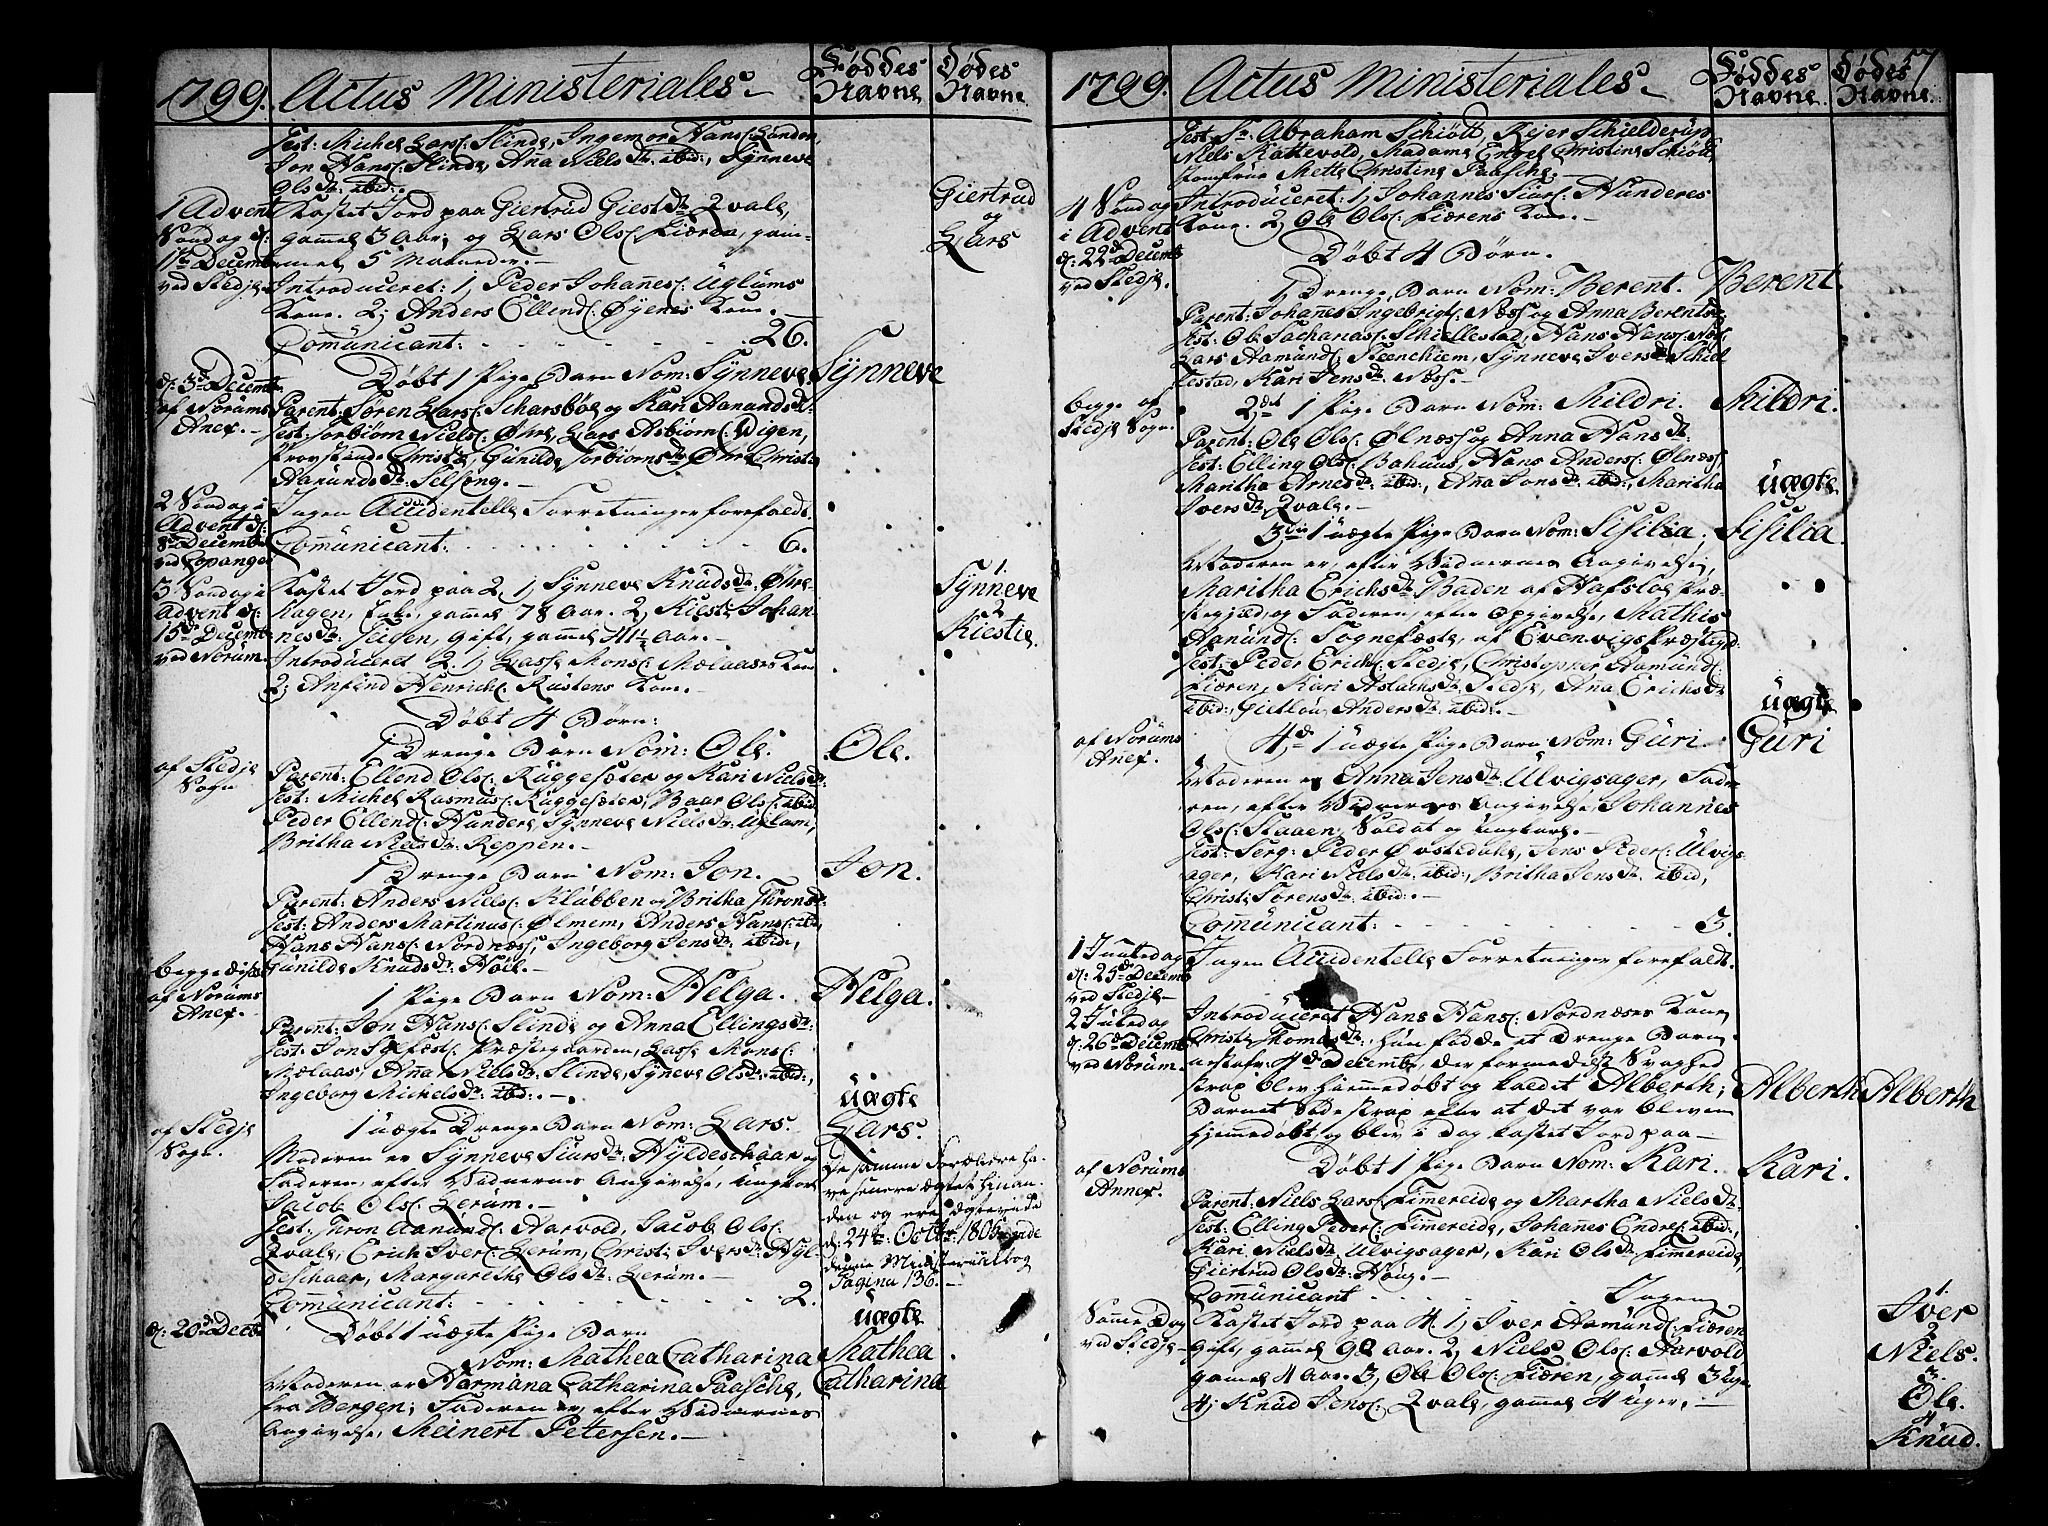 1799. Actus Ministeriales.
Føddes Navne
Dødes Navne
Test: Michel Lars: Slinde, Ingemor Hans:
Jon Hans: Slinde, Ana Niels Dr: ibid:, Synneve
Ols Dr: ibid:.
1 Advent Søndag d: 1te Decemb: ved Stedje
Kastet Jord paa Giertrud Giest Dr Qvale,
gammel 3 Aar, og Lars Ols: Fiæren, gam-
mel 5 Maaneder.
Giertrud og Lars
Introduceret: 1, Peder Johanes: Uglums
Kone. 2, Anders Ellend: Øyenes Kone.
Comunicant: 26.
d: 3de Decemb: af Norums Anex.
Døbt 1 Pige Barn Nom: Synneve. Synneve
Parent: Søren Lars: Scharsbøe og Kari Aanunds Dr:
Test: Torbiørn Niels: Øhre, Lars Asbiørn: Wigen,
Gunilde Torbiorns Dr Øhre, Christi
Aanunds Dr: Selseng.
2 Søndag i Advent d: 8de Decemb: ved Copanger
Ingen Accidentelle Forretninger forefaldt.
Comunicant: 6.
3 Søndag i Advent d: 15de Decemb: ved Norum.
Kastet Jord paa 2, 1, Synneve Knuds Dr: Øhre-
hagen, Enke, gammel 78 Aar. 2, Kiesti Johan-
nes Dr: Teigen, Gift, gammel 41½ Aar.
1 Synneve 2 Kiestie.
Introduceret 2. 1, Lasse Mons: Mælaases Kone
2, Anfind Henrich: Rustens Kone.
Døbt 4 Børn:
af Stedje Sogn
1 Drenge Barn Nom: Ole. Ole.
Parent: Ellend Ols: Ruggesæter og Kari Niels Dr
Test: Michel Rasmus: Ruggesæter, Baar Ols: ibid
Peder Ellend: Hundere, Synneve Niels Dr: Uglum,
Britha Niels Dr: Reppen.
1 Drenge Barn Nom: Jon. Jon.
Parent: Anders Niels: Klubben og Britha Thrond Dr
Test: Anders Martinus: Ølmem, Anders Hans: ibid,
Hans Hans: Nordnæss, Ingeborg Jens Dr: ibid:,
Gunilde Knuds Dr: Høil.
begge disse af Norums Anex.
1 Pige Barn Nom: Helga. Helga.
Parent: Jon Hans: Slinde og Anna Ellings Dr:
Test: Jon Sæfæst: Præstegaarden, Lasse Mons:
Mælaas, Ana Niels Dr: Slinde, Synneve Ols Dr: ibid:,
Ingeborg Michels Dr: ibid:.
af Stedje Sogn.
1 uægte Drenge Barn Nom: Lars. uægte Lars.
Moderen er Synneve Siurs Dr: Hyldeschaar og
Faderen, efter Vidnernes Angivelse, Ungkarl
Jacob Ols: Lerum.
Test: Thron Aanund: Aarvold, Jacob Ols:
Qvale, Erich Iver: Lerum, Christi Ivers Dr: Hyl-
deschaar, Margarethe Ols Dr: Lerum.
De samme Forældre ha-
ve senere ægtet hinan-
den og ere ægteviede
d: 24de Octbr: 1805
denne Ministerial bog
Pagina 136.
Comunicant: 2.
d: 20de Decb:
Døbt 1 uægte Pige Barn
Nom: Mathea Catharina
uægte Mathea Catharina
Moderen er Harmana Catharina Paasche,
fra Bergen; Faderen er, efter Vidnernes
Angivelse, Meinert Petersen.
1799. Actus Ministeriales.
Føddes Navne.
Dødes Navne.
Test: Sr: Abraham Schiøtt, Reier Schielderup,
Niels Kattevold, Madame Engel Christine Schiøtt,
Jomfrue Mette Christine Paasche.
4 Søndag i Advent d: 22de Decemb: ved Stedje.
Introduceret: 1, Johannes Siurs: Hunderes
Kone. 2, Ole Ols: Fiærens Kone.
Døbt 4 Børn.
1, Drenge Barn Nom: Berent. Berent.
Parent: Johanes Ingebrigt: Næss og Anna Berents Dr
Test: Ole Sacharias: Schiellestad, Hans Hans: Næss,
Lars Aamund: Steenehiem, Synneve Ivers Dr: Schiel
lestad, Kari Jens Dr: Næss.
begge af Stedje Sogn.
2, 1 Pige Barn Nom: Mildri. Mildri.
Parent: Ole Ols: Ølnæss og Anna Hans Dr:
Test: Elling Ols: Bahuus, Hans Anders: Ølnæss,
Maritha Arnes Dr: ibid:, Ana Jons Dr: ibid:, Maritha
Ivers Dr: Qvale.
uægte
3die 1 uægte Pige Barn Nom: Sisilia. Sisilia.
Moderen er, efter Vidnernes Angivelse,
Maritha Erichs Dr: Baden af Hafsloe Præ-
stegield, og Faderen, efter Opgivelse, Mathis
Aanund: Sognefæste, af Evenvigs Præstegd:
Test: Peder Erich: Stedje, Christopher Aamund:
Fiæren, Kari Aslachs Dr: Stedje, Ana Erichs Dr
ibid:, Gietløu Anders Dr: ibid:.
uægte
af Norums Anex.
4de 1 uægte Pige Barn Nom: Guri. Guri
Moderen er Anna Jens Dr: Ulvigsager, Fade-
ren, efter Vidnernes Angivelse Johannes
Ols: Staaen, Soldat og Ungkarl.
Test: Serg: Peder Øvstedahl, Jens Peder: Ulvigs-
ager, Kari Niels Dr: ibid:, Britha Jens Dr: ibid,
Christi Sørens Dr: ibid:.
Comunicant: 3.
1 Juuledag d: 25de Decemb: ved Stedje
Ingen Accidentelle Forretninger forefaldt.
2 Juledag d: 26de Decemb: ved Norum.
Introduceret Hans Hans: Nordnæses Kone
Christi Thomas Dr:, hun fødde et Drenge Barn
4de Decembr, der formedelst Svaghed
strax blev hiemmedøbt og kaldet Alberth; Alberth Alberth
Barnet døde strax efter at det var bleven
hiemmedøbt, og blev i Dag kastet Jord paa.
af Norums Annex.
Døbt 1 Pige Barn Nom: Kari. Kari.
Parent: Niels Lars: Fimereide og Martha Niels Dr
Test: Elling Peder: Fimereide, Johanes Endre: ibid:
Kari Niels Dr: Ulvigsager, Kari Ols Dr: Fimereide,
Giertrud Ols Dr: Houg.
Comunicant Ingen
Samme Dag ved Stedje
Kastet Jord paa 4. 1, Iver Aamund: Fiæren
gift, gammel 90 Aar. 2, Niels Ols: Aarvold
gammel 4 Aar. 3, Ole Ols: Fiæren, gammel 3 Uger.
4, Knud Jens: Qvale, gammel 4 Uger.
1 Iver
2 Niels.
3 Ole.
4 Knud.